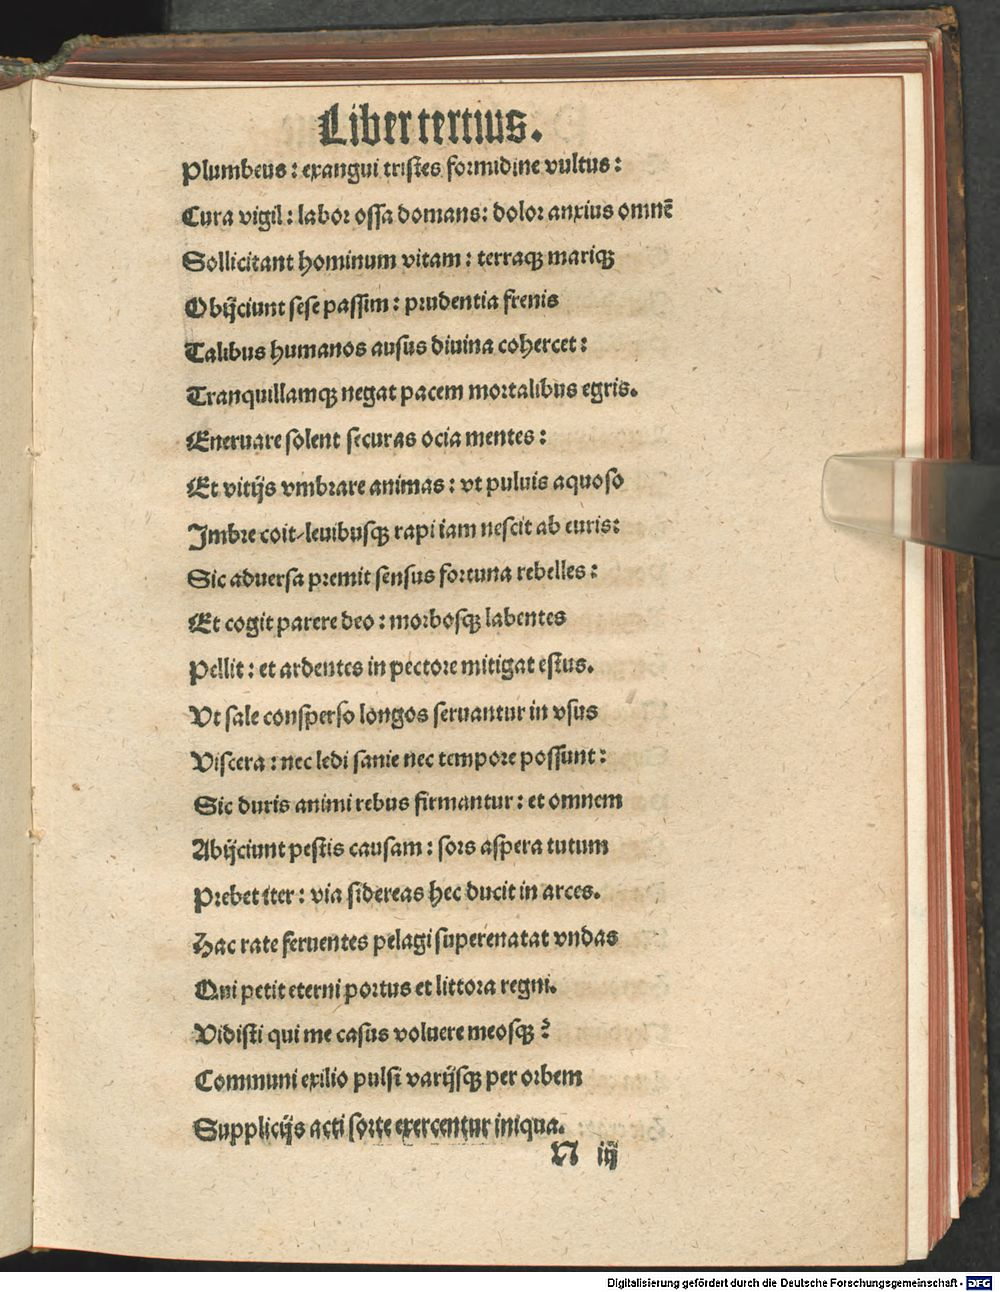 Liber tertius.
Plumbeus: exangui tristes formidine vultus:
Cura vigil: labor ossa domans: dolor anxius omnē
Sollicitant hominum vitam: terraqꝫ mariqꝫ
Obijciunt sese passim: prudentia frenis
Talibus humanos ausus diuina cohercet:
Tranquillamqꝫ negat pacem mortalibus egris.
Eneruare solent securas ocia mentes:
Et vitijs vmbrare animas: vt puluis aquoso
Imbre coit/leuibusqꝫ rapi iam nescit ab euris:
Sic aduersa premit sensus fortuna rebelles:
Et cogit parere deo: morbosqꝫ labentes
Pellit: et ardentes in pectore mitigat estus.
Vt sale consperso longos seruantur in vsus
Viscera: nec ledi sanie nec tempore possunt:
Sic duris animi rebus firmantur: et omnem
Abijciunt pestis causam: sors aspera tutum
Prebet iter: via sidereas hec ducit in arces.
Hac rate feruentes pelagi superenatat vndas
Qui petit eterni portus et littora regni.
Vidisti qui me casus voluere meosqꝫ?
Communi exilio pulsi varijsqꝫ per orbem
Supplicijs acti sorte exercentur iniqua.
N iij
Digitalisierung gefördert durch die Deutsche Forschungsgemeinschaft - DFG